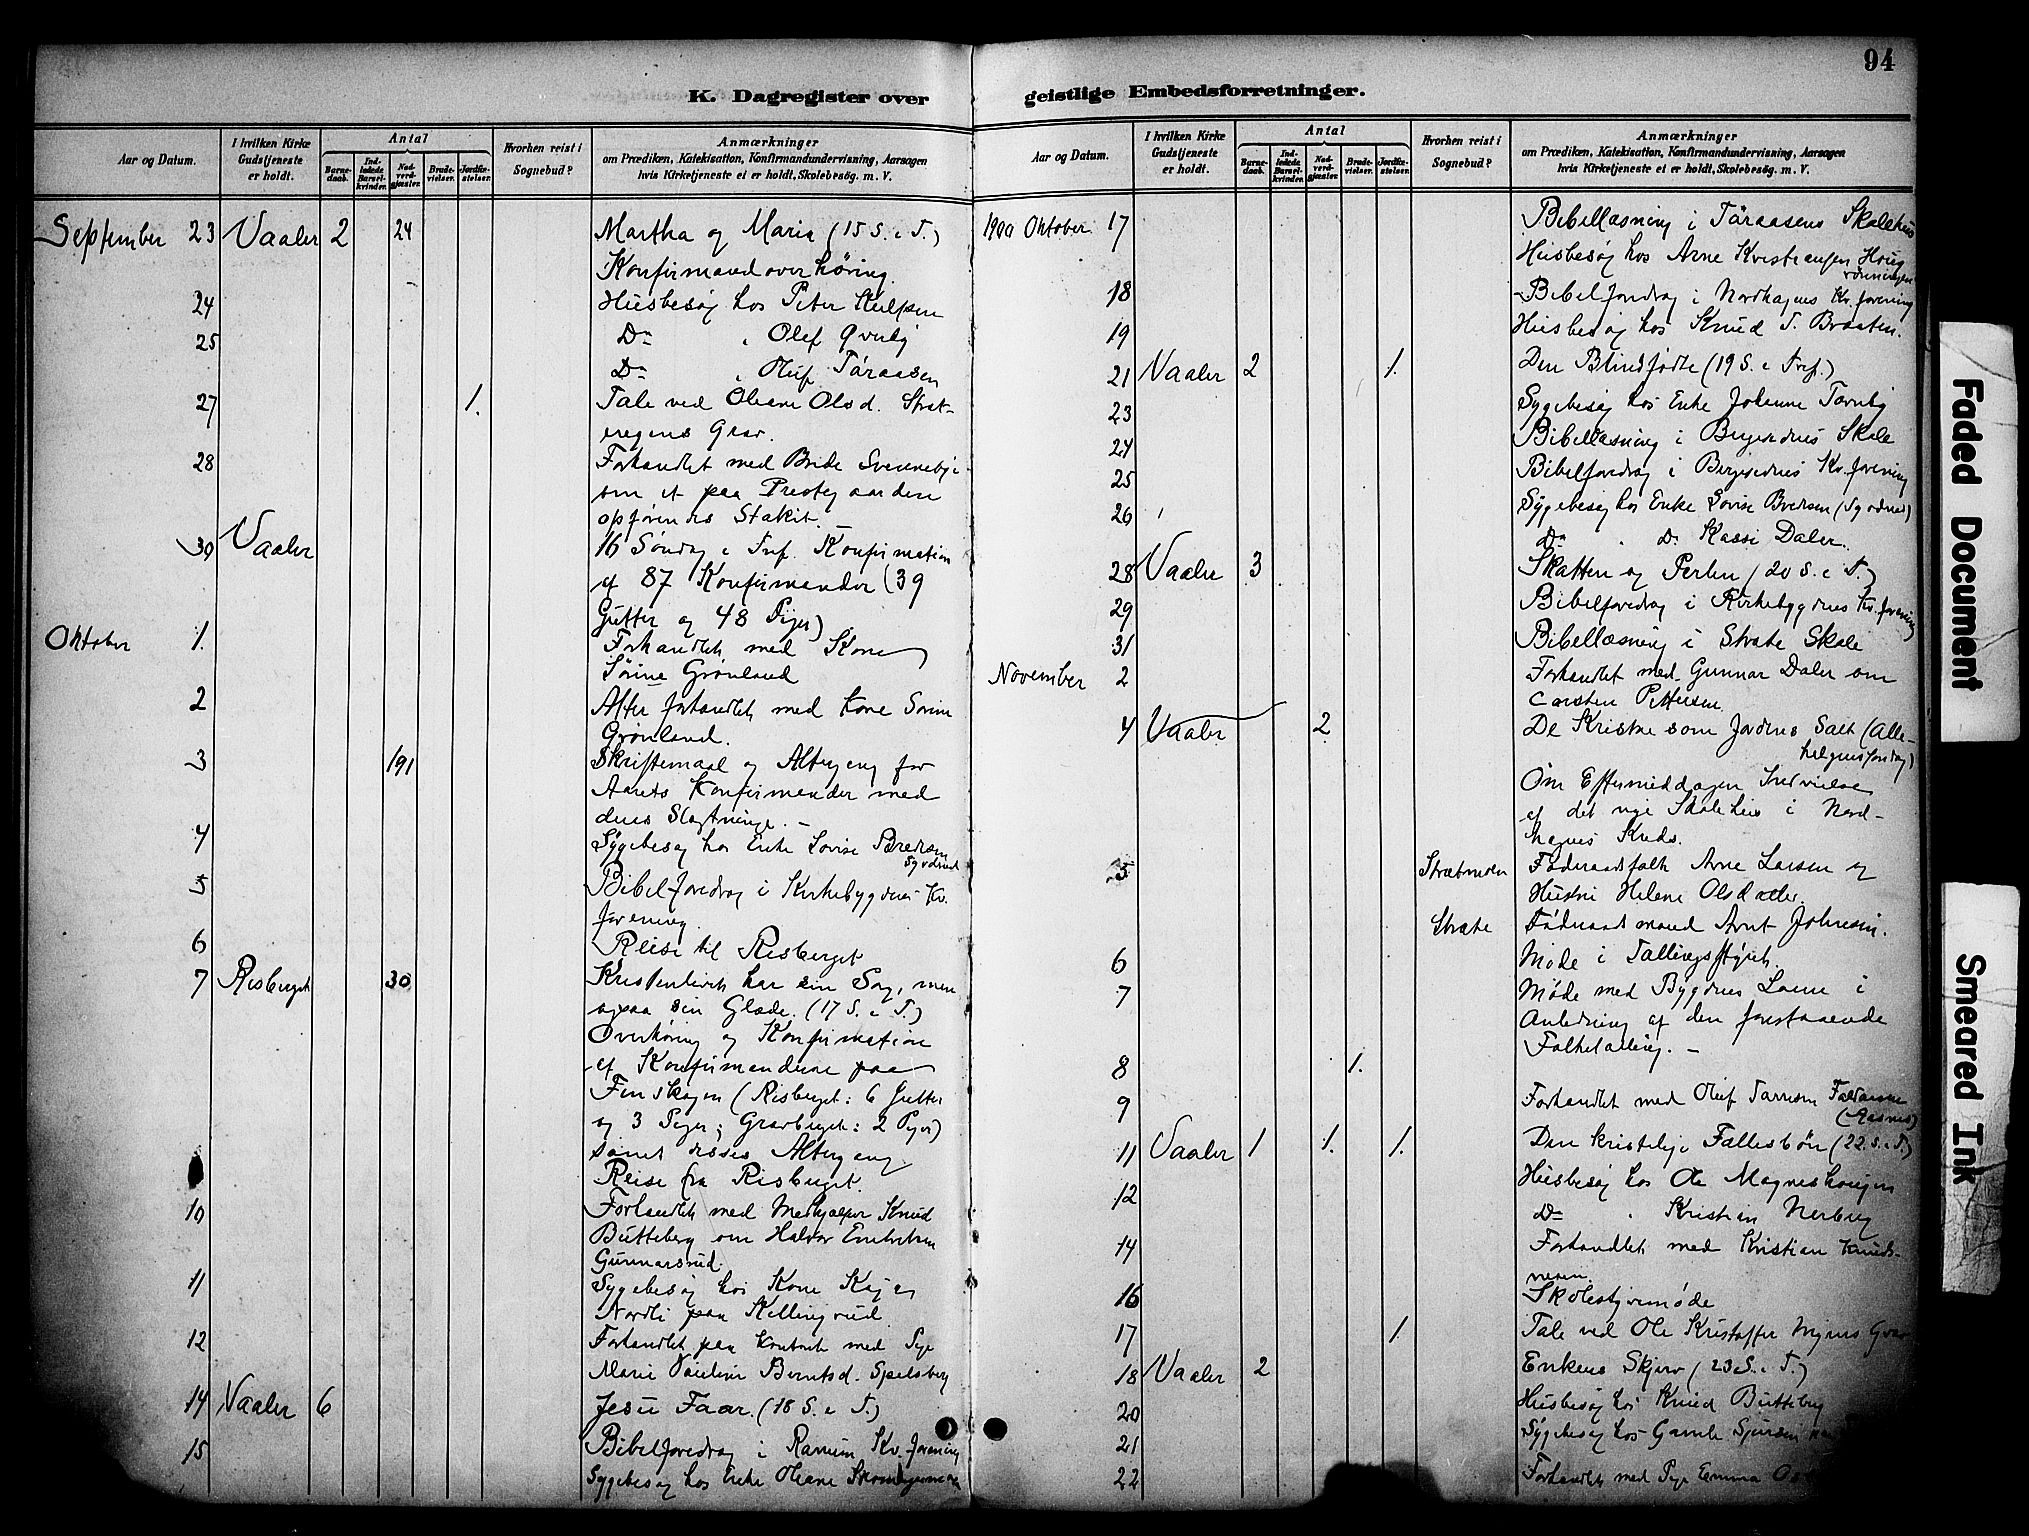 94
K. Dagregister over geistlige Embedsforretninger.
Aar og Datum.
I hvilken Kirke Gudstjeneste er holdt.
Antal
Barnedaab.
Indledede Barselkvinder.
Nadverdgjæster.
Brudevielser.
Jordfæstelser.
Hvorhen reist i Sognebud?
Anmærkninger
om Prædiken, Katekisation, Konfirmandundervisning, Aarsagen
hvis Kirketjeneste ei er holdt, Skolebesøg. m. V.
September 23 Vaaler 2 24 Martha og Maria (15 S. e T.)
Konfirmandoverhøring
24 Husbesøg hos Peter
25 Do " Olef Qveby
Do " Oluf Tåraasen
27 1. Tale ved Oleane Olsd. Strat-
eregens Grav.
28 Forhandlet med Brede Svenneby
om et paa Prestegaarden
opførendes Stakit. –
30 Vaaler 16 Søndag e Tref. Konfirmation
af 87 Konfirmander (39
Gutter og 48 Piger)
Oktober 1. Forhandlet med Kone
Sørine Grønland
2 Atter forhandlet med Kone Sørine
Grønland.
3 191 Skriftemaal og Altergang for
Aarets Konfirmander med
deres Slægtninge. –
4 Sygebesøg hos Enke Lovise Bredesen
5 Bibelforedrag i Kirkebygdens Kv.
forening.
6 Reise til Risberget
7 Risberget 30 Kristenlivet har sin Sorg, men
ogsaa sin Glæde. (17 S. e T.)
Overhøring og Konfirmation
af Konfirmanderne paa
Finskogen (Risberget: 6 Gutter
og 3 Piger; Gravberget: 2 Piger)
samt disses Altergang
Reise fra Risberget.
10 Forhandlet med Medhjælper Knud
Butteberg om Halvor
Gunnarsrud.
11 Sygebesøg hos Kone Kaja
Nordli paa Kellingrud
12 Forhandlet paa Kontoret med Pige
Marie Berntsd. Spelsberg
14 Vaaler 6 Jesu Faar. (18 S. e T.)
15 Bibelforedrag i Ranum Kv. forening
Sygebesøg hos Enke Oleane
Aar og Datum.
I hvilken Kirke Gudstjeneste er holdt.
Antal
Barnedaab.
Indledede Barselkvinder.
Nadverdgjæster.
Brudevielser.
Jordfæstelser.
Hvorhen reist i Sognebud?
Anmærkninger
om Prædiken, Katekisation, Konfirmandundervisning, Aarsagen
hvis Kirketjeneste ei er holdt, Skolebesøg. m. V.
1900 Oktober 17 Bibellæsning i Tåraasens Skolehus
Husbesøg hos Arne Kristiansen Houg
rønningen
18 Bibelforedrag i Nordhagens Kv. forening
19 Husbesøg hos Knud T. Braaten.
21 Vaaler 2 1. Den Blindfødte (19 S. e Tref.)
23 Sygebesøg hos Enke Johanne Tørneby
24 Bibellæsning i Bergesidens Skole
25 Bibelforedrag i Bergesidens Kv. forening
26 Sygebesøg hos Enke Lovise Bredesen
Do " Do Kassi Daler.
28 Vaaler 3 Skatten og Perlen (20 S. e T.)
29 Bibelforedrag i Kirkebygdens Kv. forening
31 Bibellæsning i Stræte Skole
November 2 Forhandlet med Gunnar Daler om
Carsten Pettersen.
4 Vaaler 2 De Kristne som Jordens Salt (Alle-
helgenssøndag)
Om Eftermiddagen Indvielse
af det nye Skolehus i Nord-
hagens Kreds.
5 Føderaadsfolk Arne Larsen og
Hustru Helene Olsdatter.
Stræte Føderaadsmand Arnt Johnsen.
6 Møde i Tællingsstyret.
7 Møde med Bygdens Lærere i
Anledning af den forestaaende
Folketælling. –
8 1.
9 Forhandlet med Oluf
(Aasnes)
11 Vaaler 1 1. 1. Den kristelige Fællesbøn (22. S. e T.)
12 Husbesøg hos Ole Magneshaugen
Do " Kristian Nerby
14 Forhandlet med Kristian Knuds-
16 Skolestyremøde
17 1. Tale ved Ole Kristoffer Grav
18 Vaaler 2 Enkens Skjærv (23 S. e T.)
20 Husbesøg hos Knud Butteberg
21 Sygebesøg hos Gamle
22 Forhandlet med Pige Emma
Faded Document
Smeared Ink